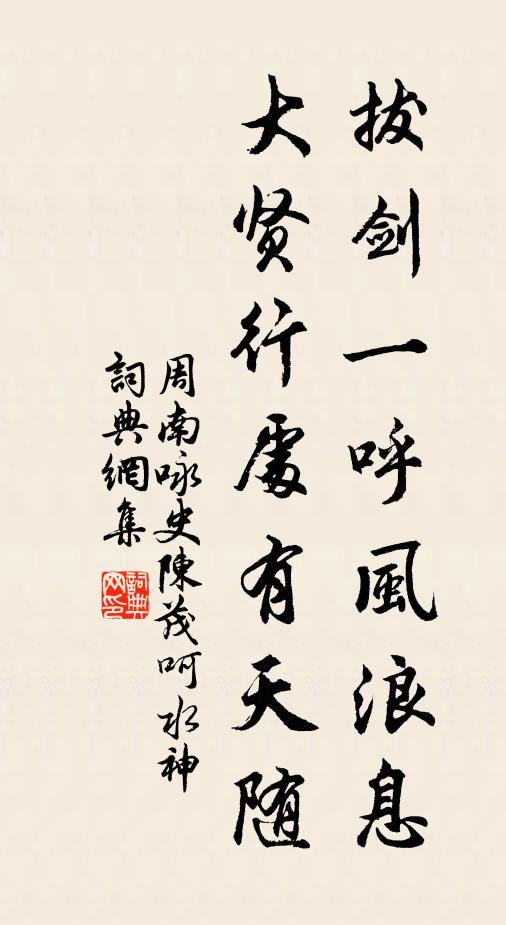 拔剑一呼風浪息
大贤行處有天随
周南咏史陳茂呵水神
詞典網集
詞典网印